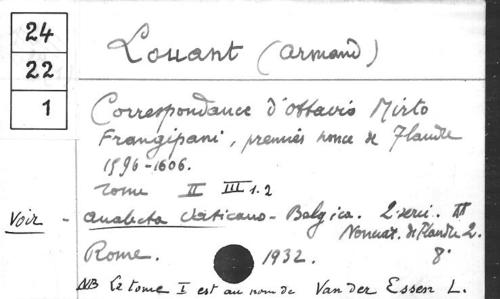 24
22
1
Louant (Armand)
Correspondance d'Ottavio Mirto
Frangipani, premier nonce de Flandre
1596-1606.
Tome II III 1.2
Voir - Analecta Vaticano-Belgica. 2e serie. III
Nonciat. de Flandre 2.
Rome. 1932. 8°
NB Le tome I est au nom de Van der Essen L.